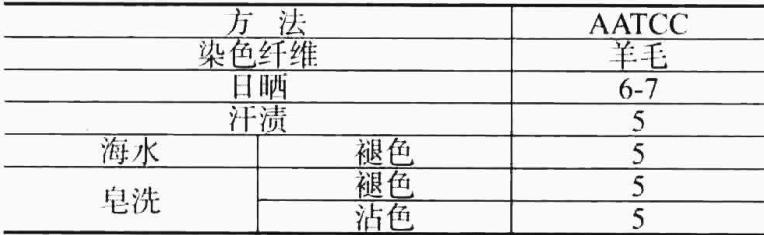 方 法 AATCC
染色纤维 羊毛
日晒 6-7
汗渍 5
海水 褪色 5
皂洗 褪色 5
沾色 5